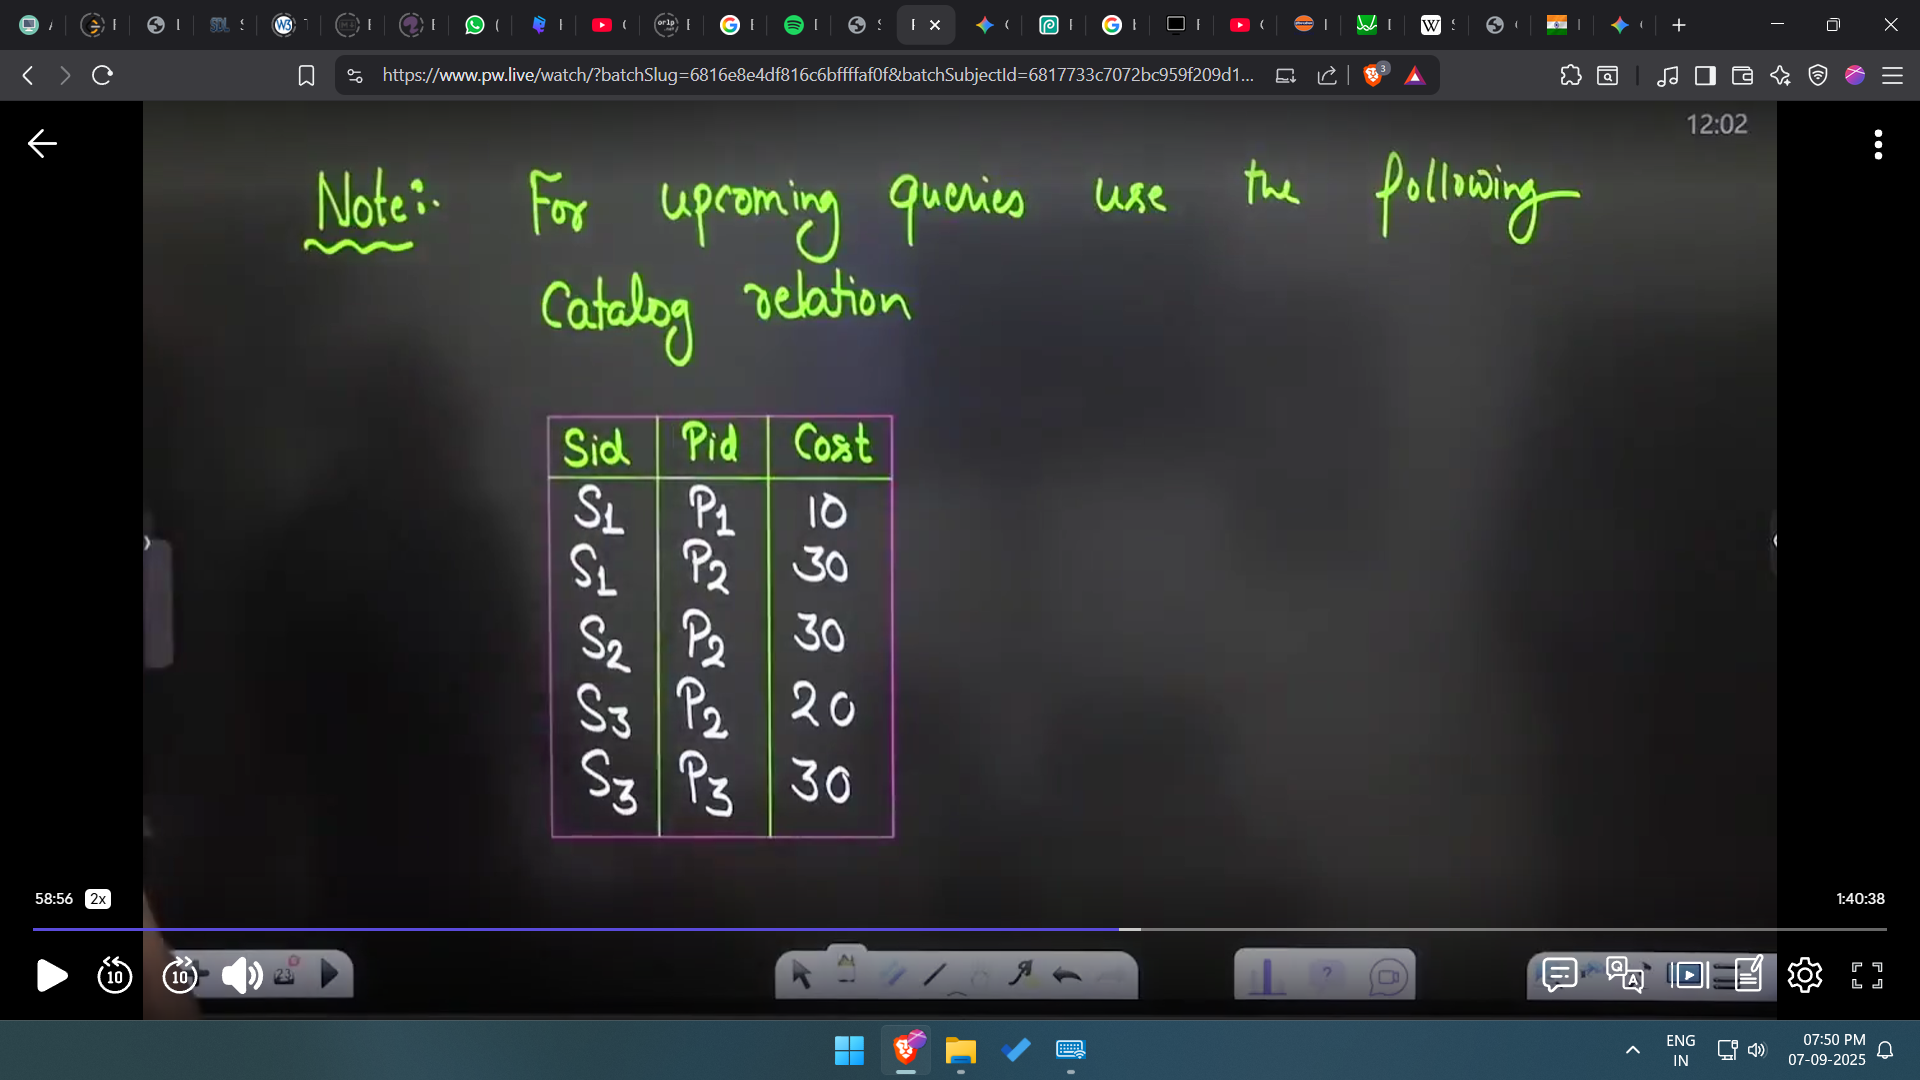 https://www.pw.live/watch/?batchSlug=6816e8e4df816c6bffffaf0f&batchSubjectId=6817733c7072bc959f209d1...
3
12:02
Note:- For upcoming queries use the following
Catalog relation
Sid Pid Cost
S1 P1 10
S1 P2 30
S2 P2 30
S3 P2 20
S3 P3 30
58:56 2x
1:40:38
10 10 23
ENG
IN
07:50 PM
07-09-2025